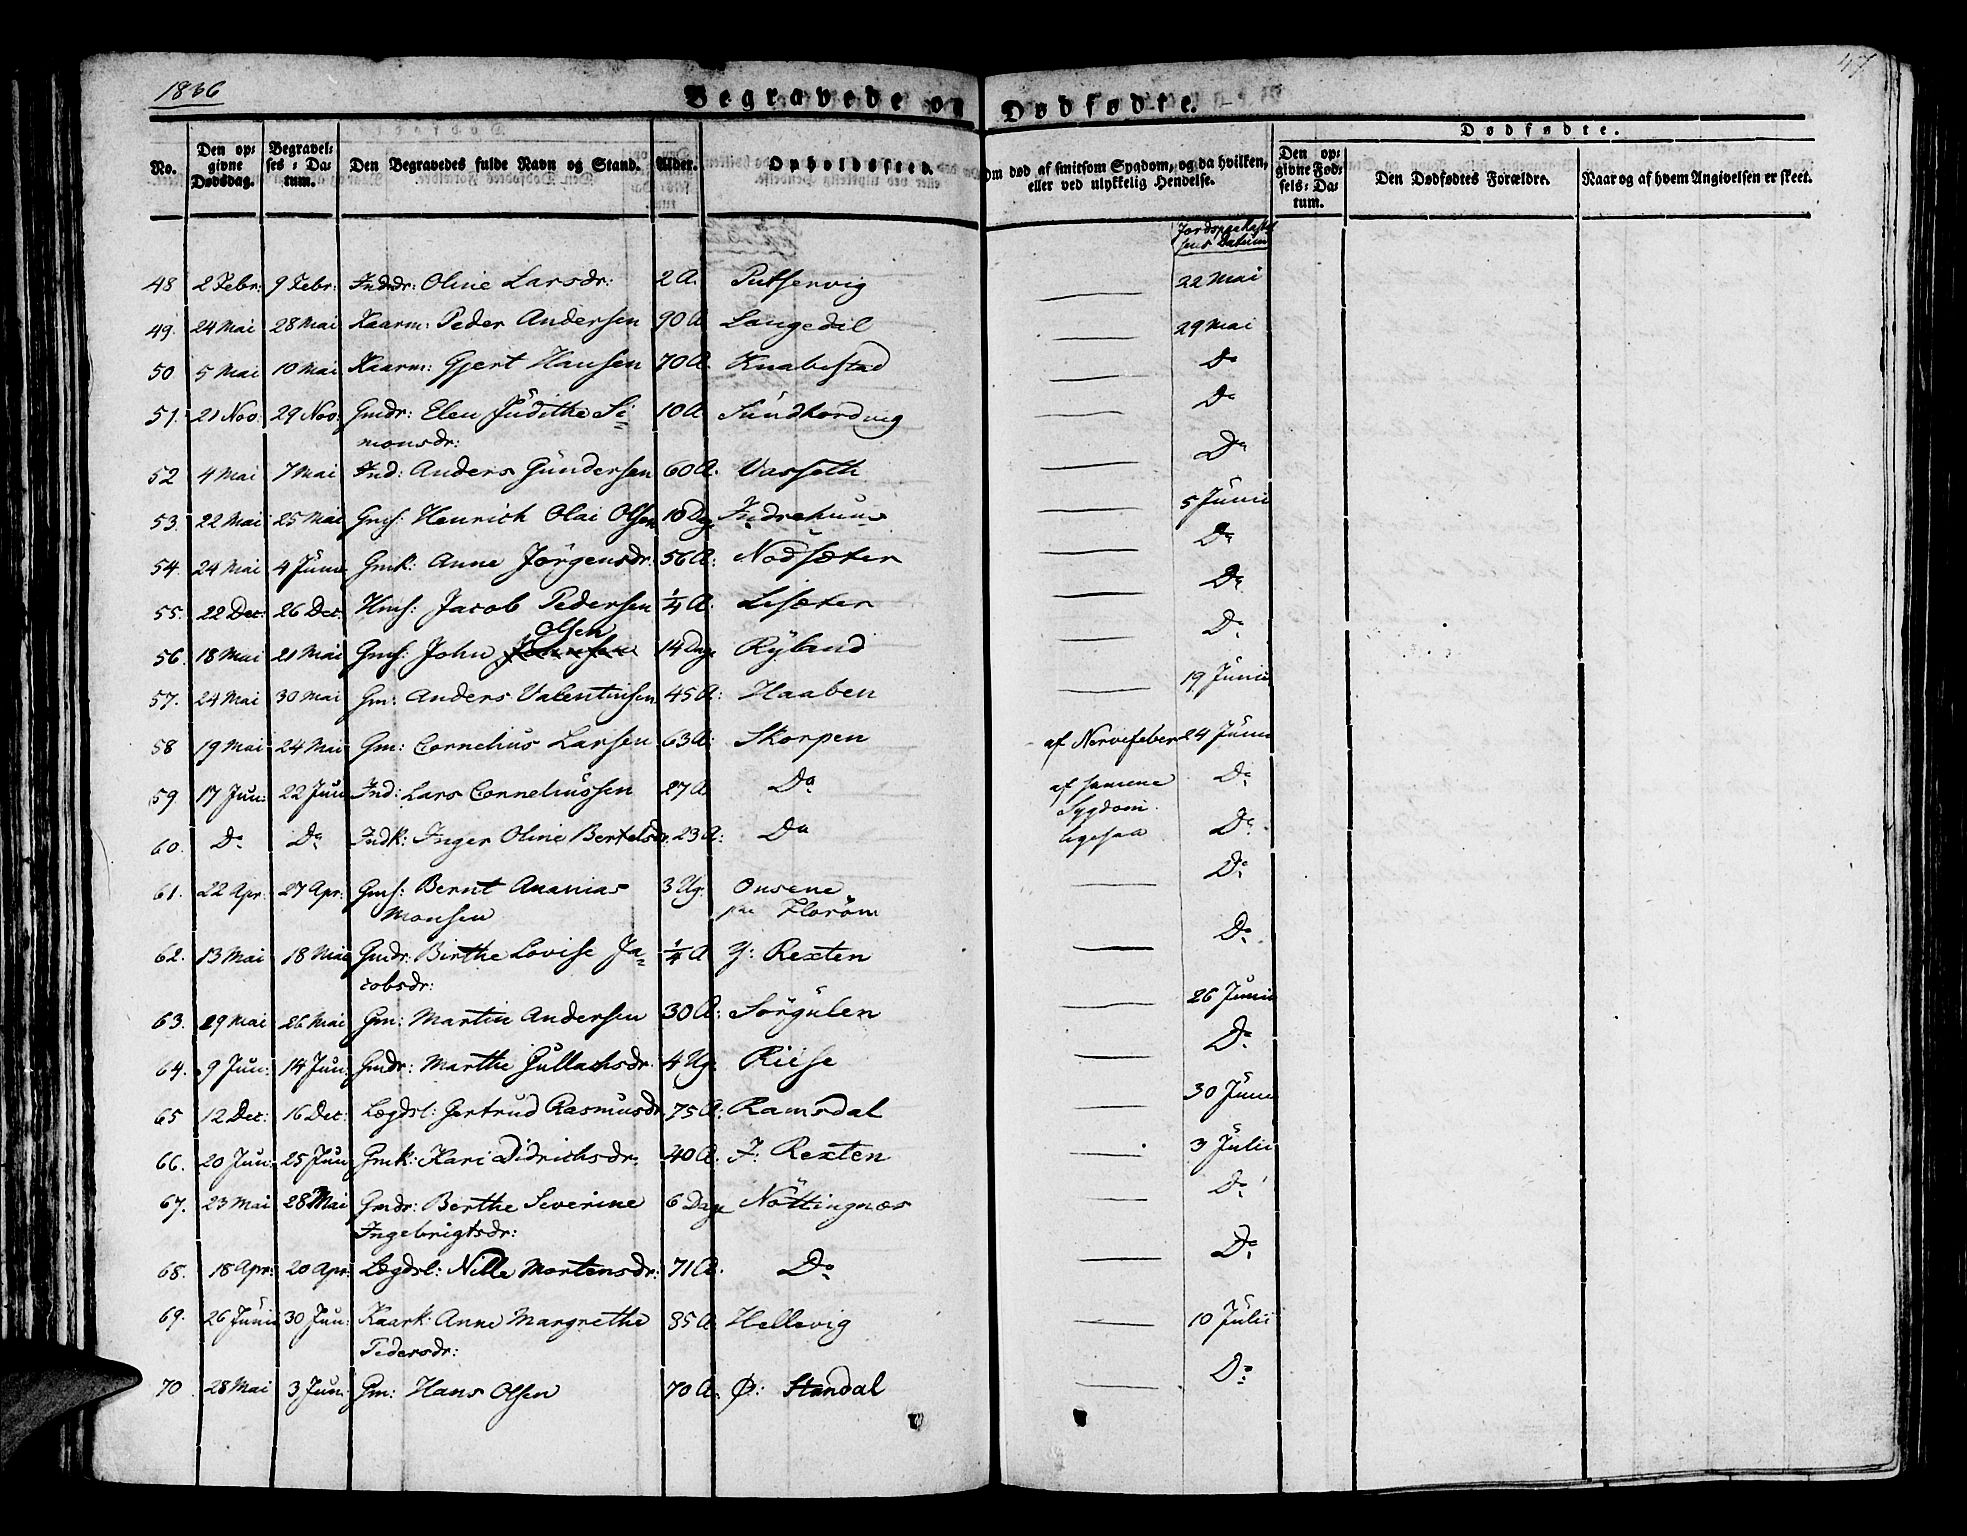 1836
47
Begravede og Dødfødte.
No.
Den op-
givne
Dødsdag.
Begravel-
ses-Da-
tum.
Den Begravedes fulde Navn og Stand.
Alder.
Opholdssted.
Om død af smitsom Sygdom, og da hvilken,
eller ved ulykkelig Hendelse.
Dødfødte.
Den op-
givne Fød-
sels-Da-
tum.
Den Dødfødtes Forældre.
Naar og af hvem Angivelsen er skeet.
Jordspaakastel
sens Datum
48 2 Febr: 9 Febr: Inddr: Oline Larsdr: 2 A. 22 Mai
49. 24 Mai 28 Mai Kaarm: Peder Andersen 90 A. Langedil 29 Mai
50 5 Mai 10 Mai Kaarm: Gjert Hansen 70 A. Knabestad Do
51. 21 Nov. 29 Nov: Gmdr: Elen Judithe Si= 10 A. Sundhordvig Do
monsdr:
52 4 Mai 7 Mai Ind: Anders Gundersen 60 A. Vasseth Do
53. 22 Mai 25 Mai Gms: Henrich Olai Olsen 10 Dag Indrehuus 5 Junii
54. 24 Mai 4 Junii Gmk: Anne Jörgensdr. 56 A. Nodsæter Do
55. 22 Dec: 26 Dec: Hms: Jacob Pedersen 1/4 A. Lisæter Do
Olsen
56. 18 Mai 21 Mai Gms: John Johnsen 14 Dage Ryland Do
57. 24 Mai 30 Mai Gm: Anders Valentinsen 45 A: Haaben 19 Junii
58 19 Mai 24 Mai Gm: Cornelius Larsen 63 A: Skorpen af Nervefeber 24 Junii
59 17 Jun: 22 Jun Ind: Lars Corneliussen 27 A Do af samme Do
Sygdom
60. Do Do Indk: Inger Oline Bertelsdr. 23 A: Do ligesaa Do
61. 22 Apr. 27 Apr: Gms: Bernt Ananias 3 Ug. Onsene Do
Monsen paa Florøen
62. 13 Mai 18 Mai Gmdr: Birthe Lovise Ja= 1/4 A Y: Rexten Do
cobsdr:
63. 29 Mai 26 Mai Gm: Martin Andersen 30 A: Sörgulen 26 Junii
64. 9 Jun: 14 Jun: Gmdr: Marthe Gullachsdr. 4 Ug. Riise Do
65 12 Dec: 16 Dec: Lægdsl: Gertrud Rasmusdr 75 A: Ramsdal 30 Junii
66. 20 Jun: 25 Jun Gmk: Kari Didrichsdr. 40 A. I: Rexten 3 Julii
67. 23 Mai 28 Mai Gmdr: Berthe Severine 6 Dage Nöttingnæs Do
Ingebrigtsdr:
68. 18 Apr: 20 Apr: Lægdsl: Nille Mortensdr: 71 A. Do Do
69. 26 Junii 30 Jun: Kaark: Anne Margrethe 85 A: Hellevig 10 Julii
Pedersdr:
70 28 Mai 3 Jun: Gm: Hans Olsen 70 A. Ø: Standal Do